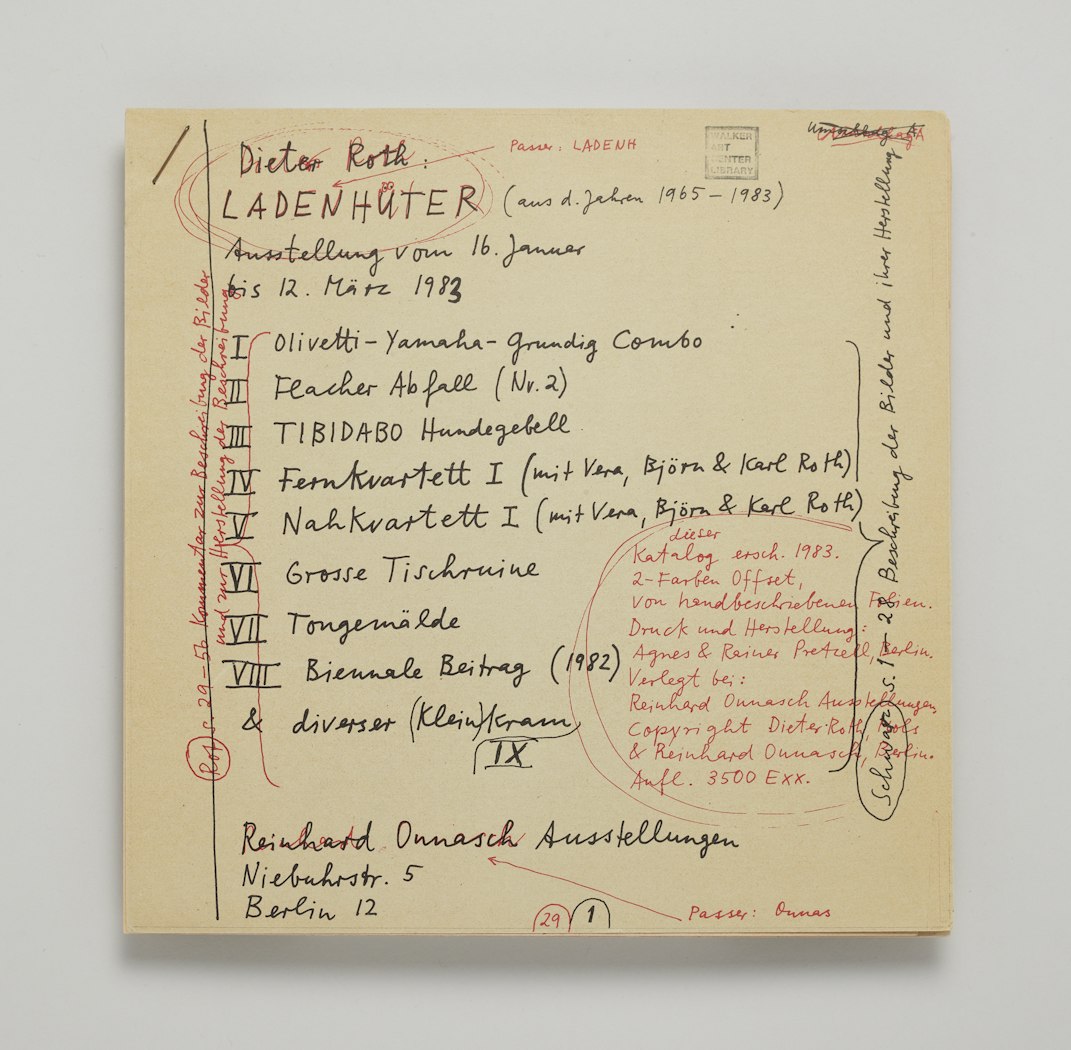 Dieter Roth:
Passer: LADENH
WALKER
ART
CENTER
LIBRARY
Umschlag A
LADENHÜTER (aus d. Jahren 1965 – 1983)
Ausstellung vom 16. Januar
bis 12. März 1983
I Olivetti-Yamaha-Grundig Combo
II Flacher Abfall (Nr. 2)
III TIBIDABO Hundegebell
IV Fernkvartett I (mit Vera, Björn & Karl Roth)
V Nahkvartett I (mit Vera, Björn & Karl Roth)
VI Grosse Tischruine
VII Tongemälde
VIII Biennale Beitrag (1982)
& diverser (Klein)kram
IX
dieser
Katalog ersch. 1983.
2-Farben Offset,
von handbeschriebenen Folien.
Druck und Herstellung:
Agnes & Rainer Pretzell, Berlin.
Verlegt bei:
Reinhard Onnasch Ausstellungen
Copyright Dieter Roth,
& Reinhard Onnasch, Berlin.
Aufl. 3500 Exx.
Schwarz S. 1 – 28 Beschreibung der Bilder und ihrer Herstellung
Rot S. 29–56 Kommentar zur Beschreibung der Bilder
und zur Herstellung der Beschreibung
Reinhard Onnasch Ausstellungen
Niebuhrstr. 5
Berlin 12
29 1
Passer: Onnas